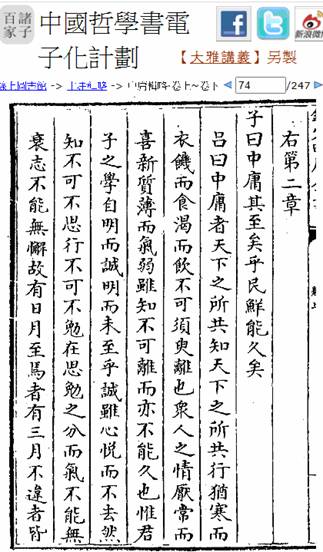 諸子百家
中國哲學書電
子化計劃
【大雅講義】另製
新浪微博
線上圖書館 -> 中庸輯略 -> 中庸輯略·卷上~卷下
74 /247
右第二章
子曰中庸其至矣乎民鮮能久矣
呂曰中庸者天下之所共知天下之所共行猶寒而
衣饑而食渴而飲不可須臾離也衆人之情厭常而
喜新質薄而氣弱雖知不可離而亦不能久也惟君
子之學自明而誠明而未至乎誠雖心悅而不去然
知不可不思行不可不勉在思勉之分而氣不能無
衰志不能無懈故有日月至焉者有三月不違者皆